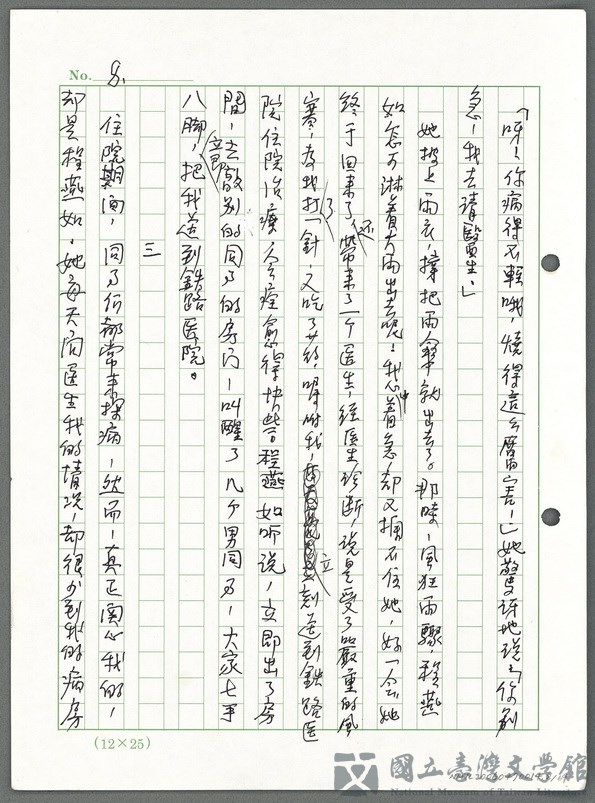 No. 8.
「呀！你病得不輕哦，燒得這么厲害！」她驚訝地說：「你別
急！我去請醫生。」
她披上雨衣，撐把雨傘就出去了。那時，風狂雨驟，程燕
如怎可淋着大雨出去呢！我心中着急，却又攔不住她，好一会她
終于回来了，还帶来了一个医生，经医生诊断，说是受了严重的風
寒，为我打了一針，又吃了葯，嘱咐我，立刻送到鉄路医
院住院治療会痊愈得快些。程燕如听说，立即出了房
間，去敲别的同事的房门，叫醒了几个男同事，大家七手
八脚，立即把我送到鉄路医院。
三
住院期间，同事们都常来探病，然而，真正関心我的，
却是程燕如，她每天问医生我的情况，却很少到我的病房
(12×25)
國立臺灣文學館
National Museum of Taiwan Literature